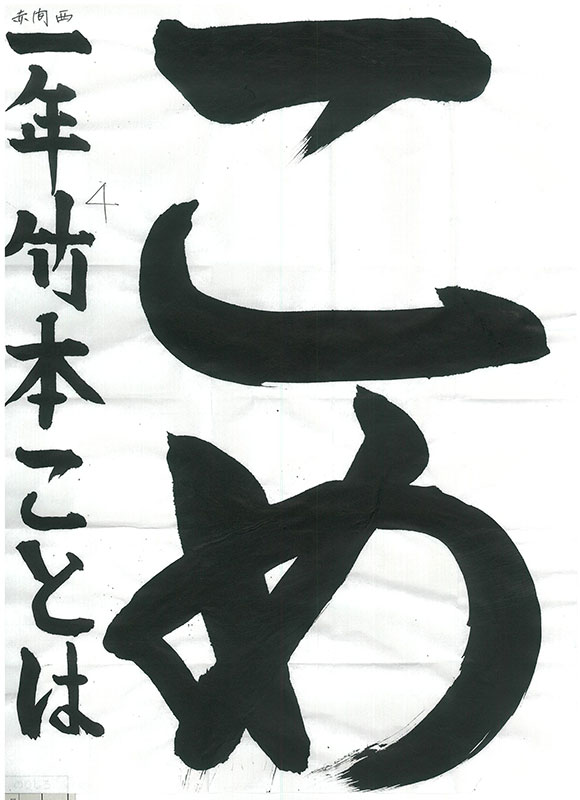 こめ
赤間西
一年竹本ことは
4